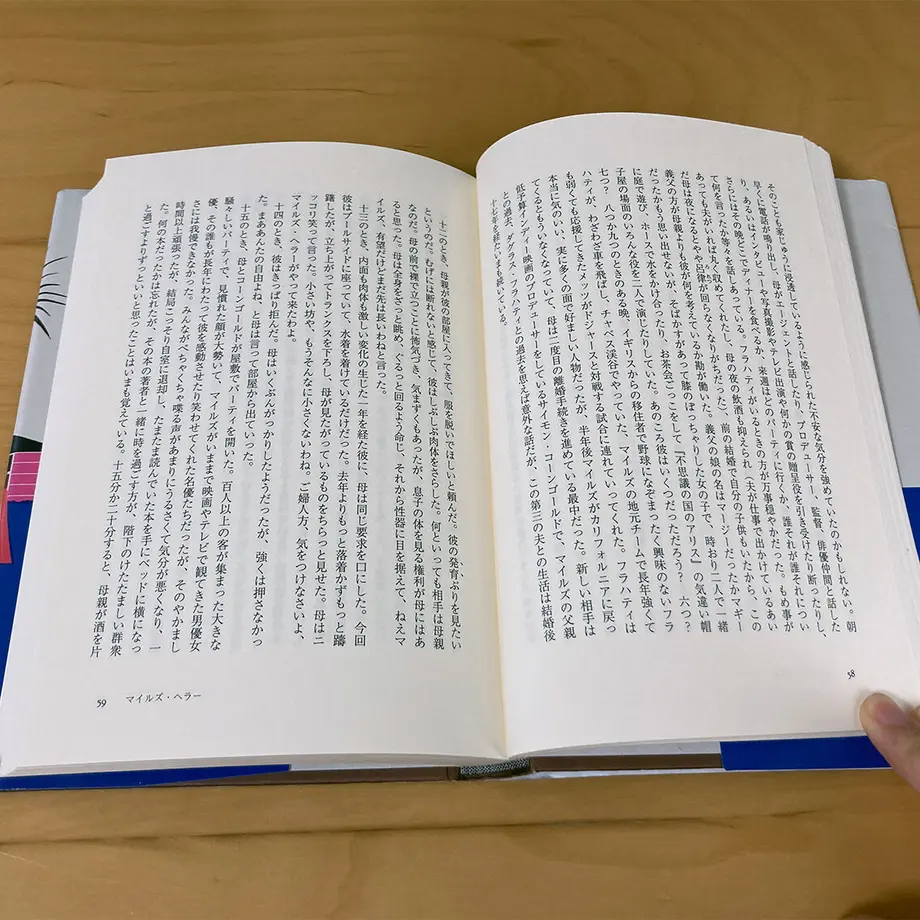 そのことも家じゅうに浸透しているように感じられた不安な気分を強めていたのかもしれない。朝
早くに電話が鳴り出し、母がエージェントと話したり、プロデューサー、監督、俳優仲間と話した
り、あるいはインタビューや写真撮影やテレビ出演や何かの賞の贈呈役を引き受けたり断ったりし、
さらにはその晩どこでディナーを食べるか、来週はどのパーティに行くか、誰それが誰それについ
て何を言ったか等々を話しあっている。フラハティがいるときの方が万事穏やかだった。もめ事が
あっても夫がいれば丸く収めてくれたし、母の夜の飲酒も抑えられ（夫が仕事で出かけているあい
だ母は夜になるとやや呂律が回らなくなりがちだった）、前の結婚で自分の子供もいたから、この
義父の方が母親よりも彼が何を考えているか勘が働いた。義父の娘の名はマージーだったかマギー
だったかもう思い出せないが、そばかすがあって膝のぽっちゃりした女の子で、時おり二人で一緒
に庭で遊び、ホースで水をかけ合ったり、お茶会ごっこをして『不思議の国のアリス』の気違い帽
子屋の場面のいろんな役を二人で演じたりしていた。あのころ彼はいくつだっただろう？　六つ？
七つ？　八つか九つのときのある晩、イギリスからの移住者で野球になぞまったく興味のないフラ
ハティが、わざわざ車を飛ばし、チャベス渓谷でやっていた、マイルズの地元チームで長年強くて
も弱くても応援してきたメッツがドジャースと対戦する試合に連れていってくれた。フラハティは
本当に気のいい、実に多くの面で好ましい人物だったが、半年後マイルズがカリフォルニアに戻っ
てくるともういなくなっていて、母は二度目の離婚手続きを進めている最中だった。新しい相手は
低予算インディー映画のプロデューサーをしているサイモン・コーンゴールドで、マイルズの父親
との過去、ダグラス・フラハティとの過去を思えば意外な話だが、この第三の夫との生活は結婚後
十七年を経たいまも続いている。
58
十二のとき、母親が彼の部屋に入ってきて、服を脱いでほしいと頼んだ。彼の発育ぶりを見たい
というのだ。むげには断れないと感じて、彼はしぶしぶ肉体をさらした。何といっても相手は母親
なのだ。母の前で裸で立つことに怖気づき、気まずくもあったが、息子の体を見る権利が母にはあ
ると思った。母は全身をざっと眺め、ぐるっと回るよう命じ、それから性器に目を据えて、ねえマ
イルズ、有望だけどまだ先は長いわねと言った。
十三のとき、内面も肉体も激しい変化の生じた一年を経た彼に、母は同じ要求を口にした。今回
彼はプールサイドに座っていて、水着を着けているだけだった。去年よりもっと落着かずもっと躊
躇したが、立ち上がってトランクスを下ろし、母が見たがっているものをちらっと見せた。母はニ
ッコリ笑って言った。小さい坊や、もうそんなに小さくないわね。ご婦人方、気をつけなさいよ、
マイルズ・ヘラーがやって来たわよ。
十四のとき、彼はきっぱり拒んだ。母はいくぶんがっかりしたようだったが、強くは押さなかっ
た。まああんたの自由よね、と母は言って部屋から出ていった。
十五のとき、母とコーンゴールドが屋敷でパーティを開いた。百人以上の客が集まった大きな
騒々しいパーティで、見慣れた顔が大勢いて、マイルズがいままで映画やテレビで観てきた男優女
優、その誰もが長年にわたって彼を感動させたり笑わせてくれた名優たちだったが、そのやかまし
さには我慢できなかった。みんながぺちゃくちゃ喋る声があまりにうるさくて気分が悪くなり、一
時間以上頑張ったが、結局こっそり自室に退却し、たまたま読んでいた本を手にベッドに横になっ
た。何の本だったかは忘れたが、その本の著者と一緒に時を過ごす方が、階下のけたたましい群衆
と過ごすよりずっといいと思ったことはいまも覚えている。十五分か二十分すると、母親が酒を片
59　マイルズ・ヘラー